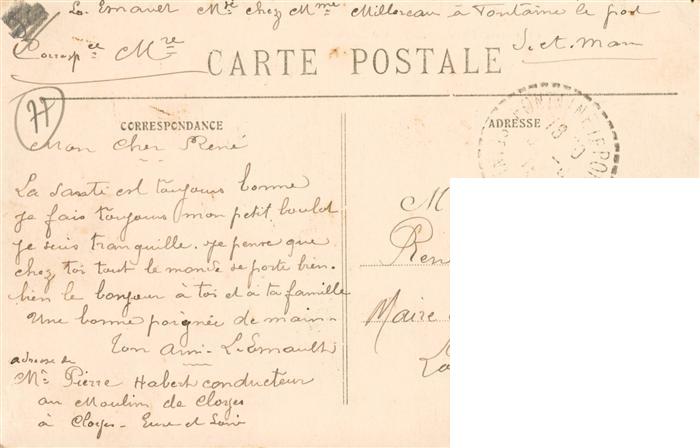 L. Emault Mre chez Mme Millereau à Fontaine le port
Corresp ce Mre
S. et. Marn
CARTE POSTALE
77
CORRESPONDANCE
ADRESSE
FONTAINE LE POR
Mon Cher René
La Santé est toujours bonne
je fais toujours mon petit boulot
je suis tranquille. je pense que
chez toi tout le monde se porte bien.
bien le bonjour à toi et à ta famille
Une bonne poignée de main-
Ton ami- L. Emault
adresse de
Mr Pierre Habert conducteur
au Moulin de Cloyes
à Cloyes- Eure et Loir
M
Ren
Maire